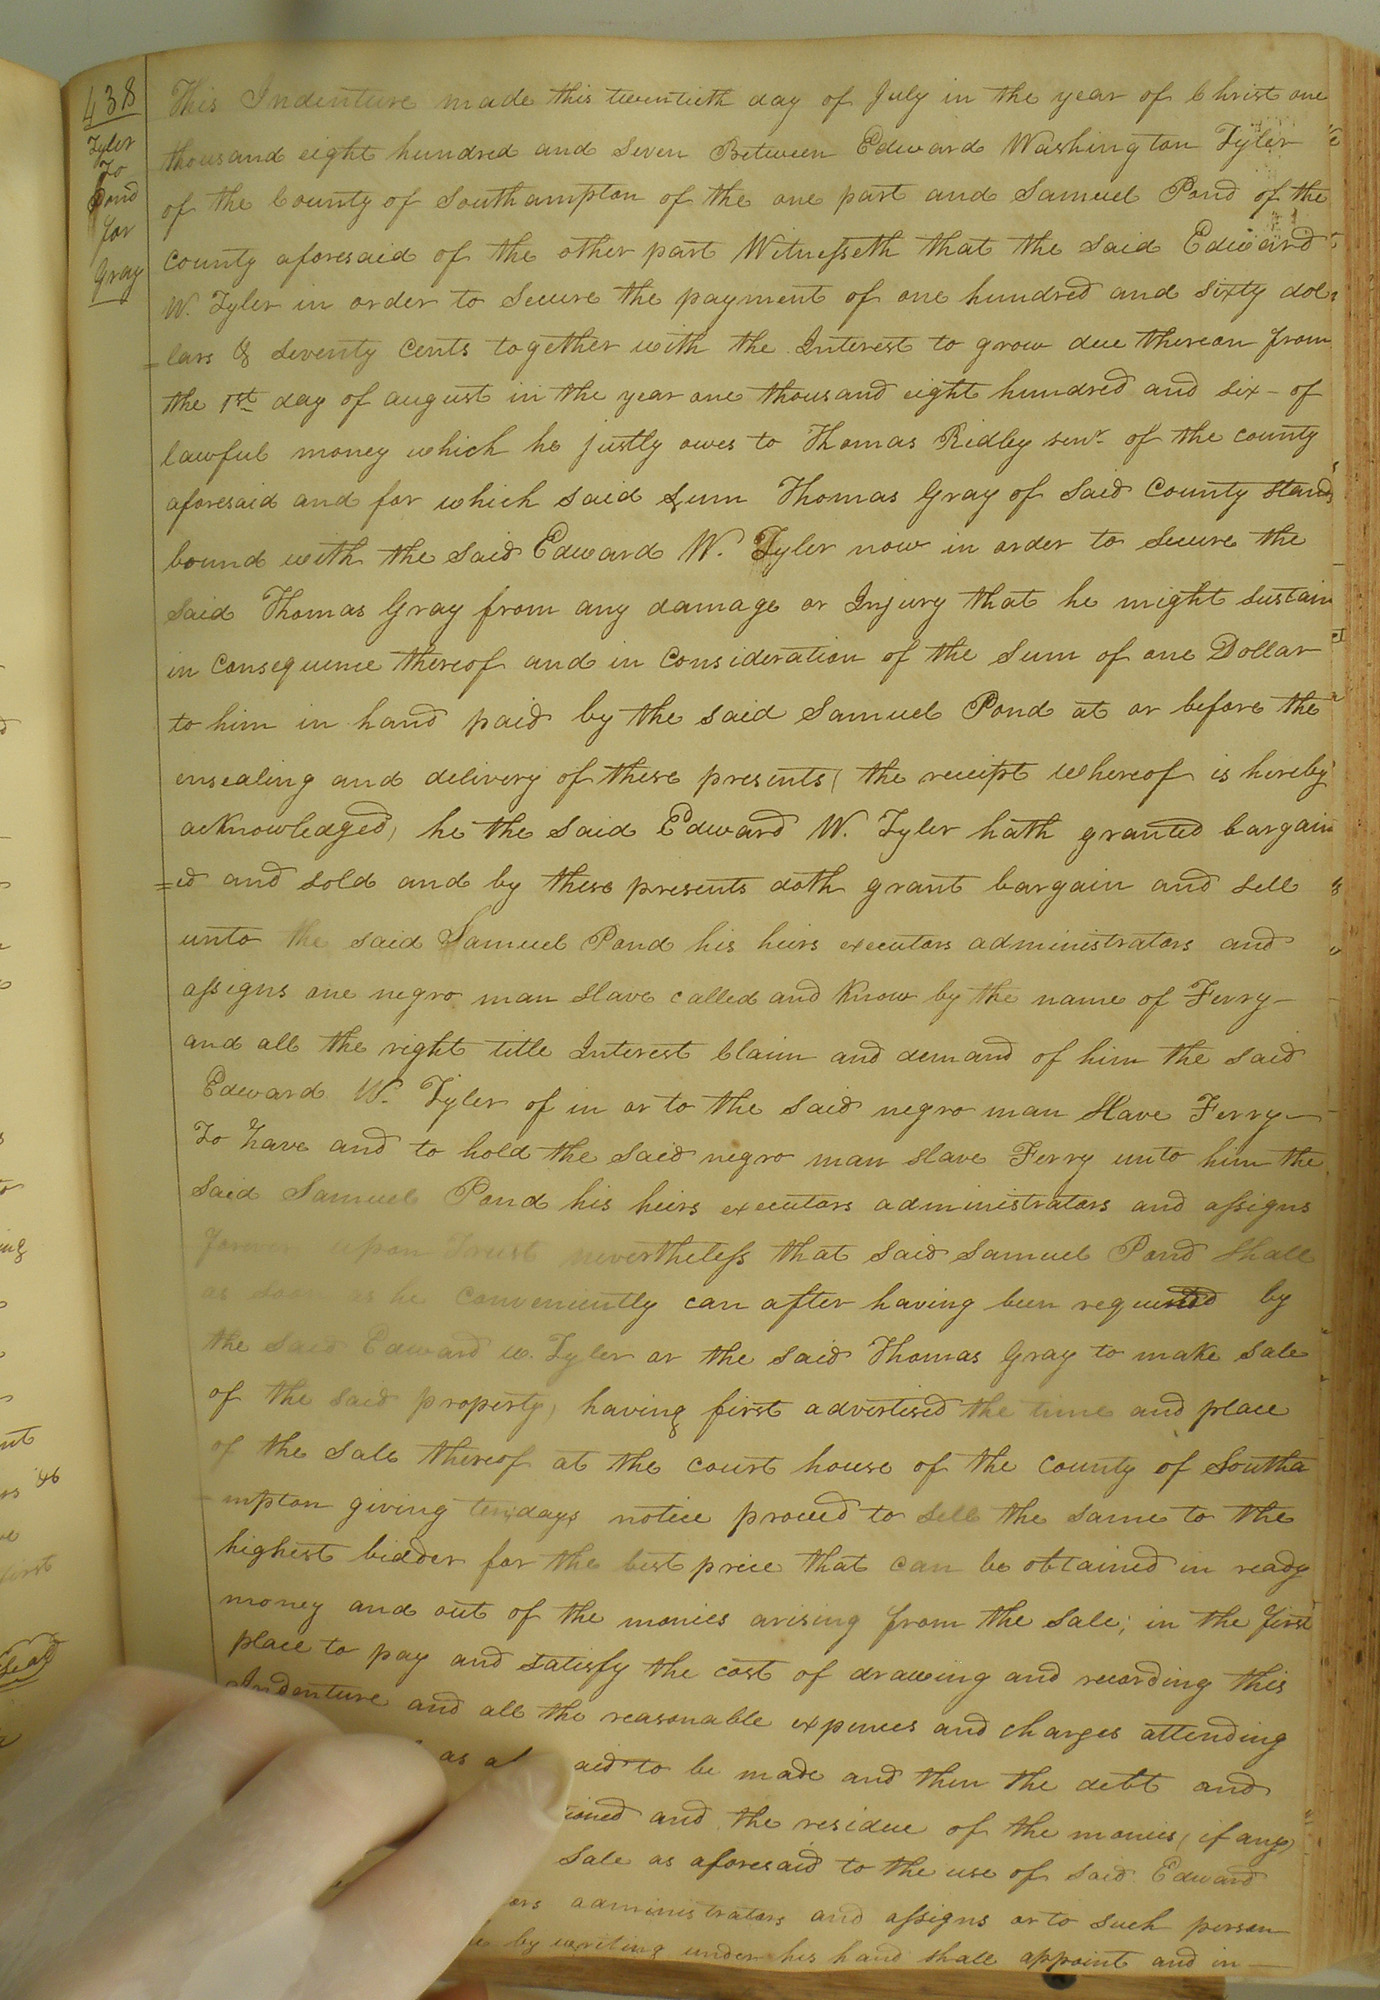 438
Tyler
To
Pond
for
Gray
This Indenture made this twentieth day of July in the year of Christ one
thousand eight hundred and seven Between Edward Washington Tyler
of the County of Southampton of the one part and Samuel Pond of the
county aforesaid of the other part Witnesseth that the said Edward
W. Tyler in order to secure the payment of one hundred and sixty dol
=lars & seventy cents together with the Interest to grow due thereon from
the 1st day of august in the year one thousand eight hundred and six - of
lawful money which he justly owes to Thomas Ridley senr of the county
aforesaid and for which said sum Thomas Gray of said County stands
bound with the said Edward W. Tyler now in order to secure the
said Thomas Gray from any damage or Injury that he might sustain
in consequence thereof and in consideration of the sum of one Dollar
to him in hand paid by the said Samuel Pond at or before the
ensealing and delivery of these presents ( the receipt whereof is hereby
acknowledged) he the said Edward W. Tyler hath granted bargain
=ed and sold and by these presents doth grant bargain and sell
unto the said Samuel Pond his heirs executors administrators and
assigns one negro man slave called and know by the name of Ferry -
and all the right title Interest Claim and demand of him the said
Edward W. Tyler of in or to the said negro man slave Ferry -
To have and to hold the said negro man slave Ferry unto him the
said Samuel Pond his heirs executors administrators and assigns
forever upon trust nevertheless that said Samuel Pond shall
as soon as he conveniently can after having been requested by
the said Edward W. Tyler or the said Thomas Gray to make sale
of the said property, having first advertised the time and place
of the sale thereof at the court house of the County of Southa
- mpton giving ten days notice proceed to sell the same to the
highest bidder for the best price that can be obtained in ready
money and out of the monies arising from the sale; in the first
place to pay and satisfy the cost of drawing and recording this
Indenture and all the reasonable expences and charges attending
as aid to be made and then the debt and
tioned and the residue of the monies (if any)
sale as aforesaid to the use of said Edward
ors administrators and assigns or to such person
by writing under his hand shall appoint and in -